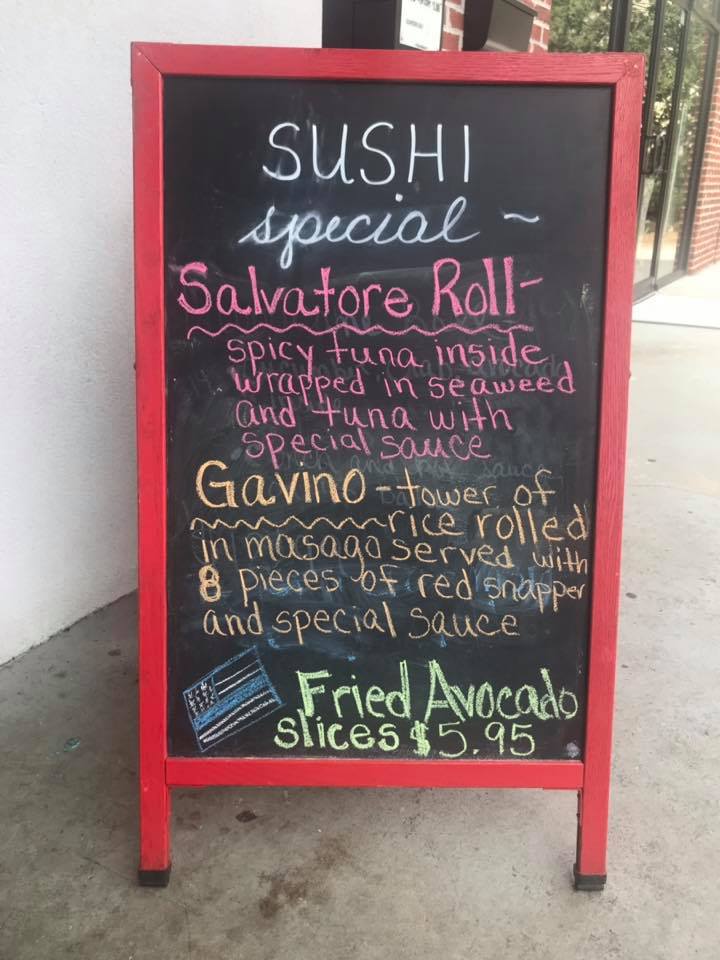 SUSHI
special ~
Salvatore Roll-
spicy tuna inside
wrapped in seaweed
and tuna with
special sauce
Gavino - tower of
rice rolled
in masago served with
8 pieces of red snapper
and special sauce
Fried Avocado
slices $5.95